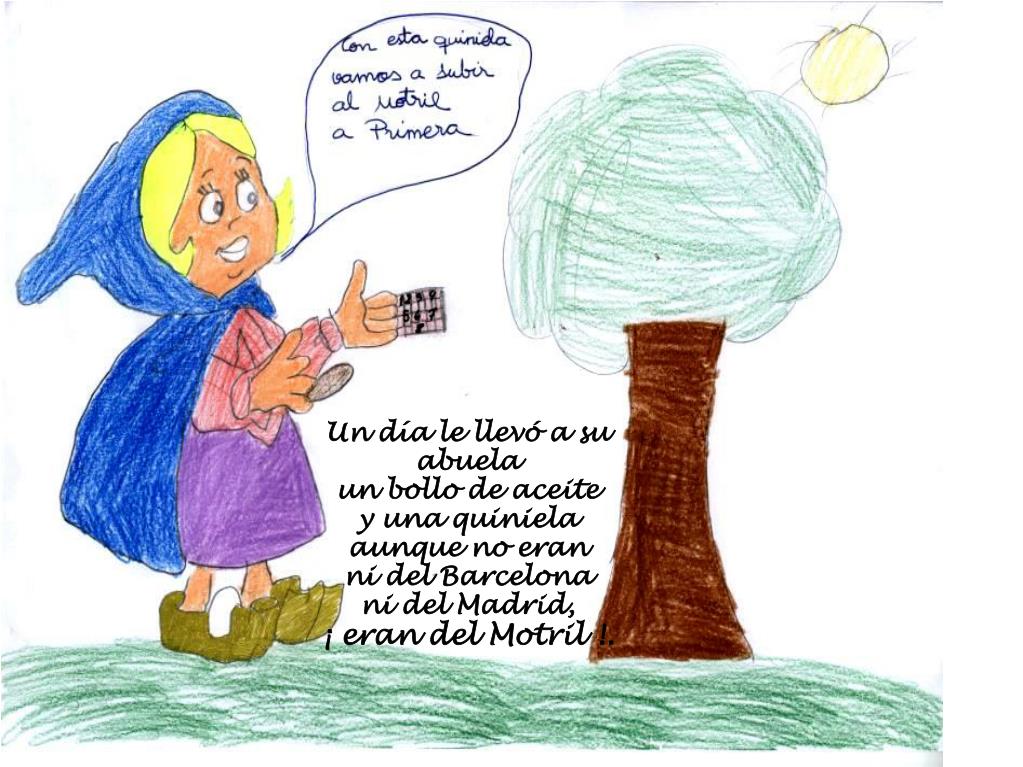 Con esta quiniela
vamos a subir
al Motril
a Primera
1 2 3 9
5 6 7
8
Un día le llevó a su
abuela
un bollo de aceite
y una quiniela
aunque no eran
ni del Barcelona
ni del Madrid,
¡ eran del Motril !.